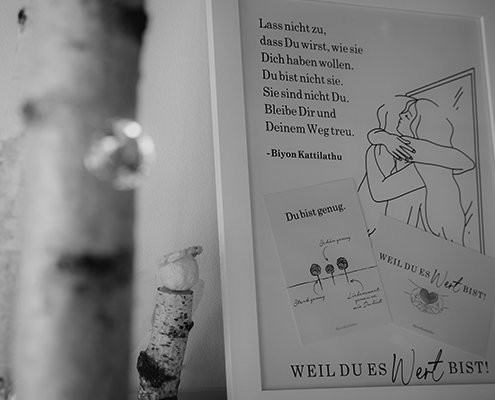 Lass nicht zu,
dass Du wirst, wie sie
Dich haben wollen.
Du bist nicht sie.
Sie sind nicht Du.
Bleibe Dir und
Deinem Weg treu.
- Biyon Kattilathu
Du bist genug.
Schön genug
Stark genug
Liebenswert
genau so,
wie Du bist
WEIL DU ES Wert BIST!
WEIL DU ES Wert BIST!